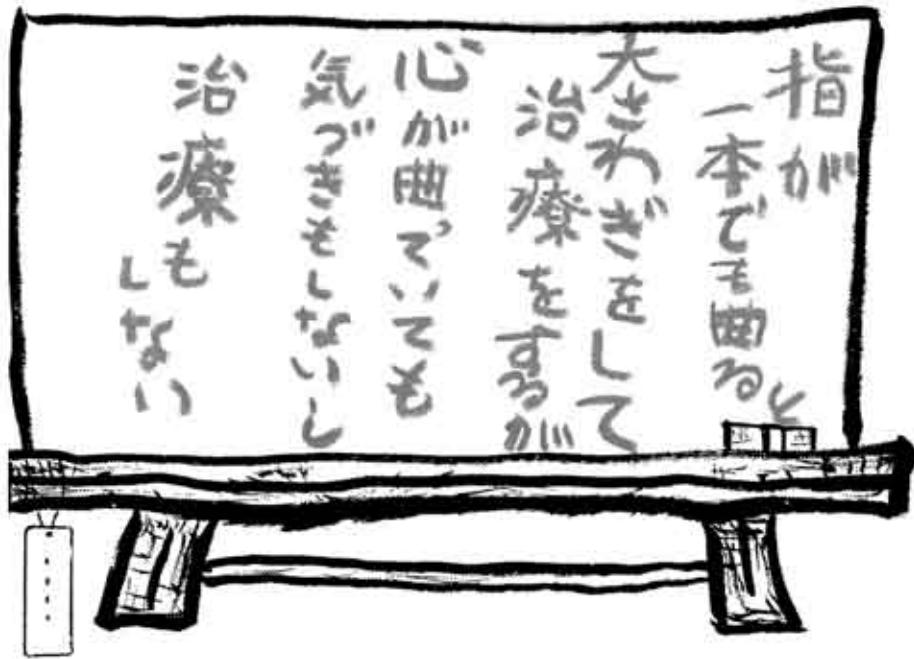 指が
一本でも曲ると
大さわぎをして
治療をするが
心が曲っていても
気づきもしないし
治療も
しない